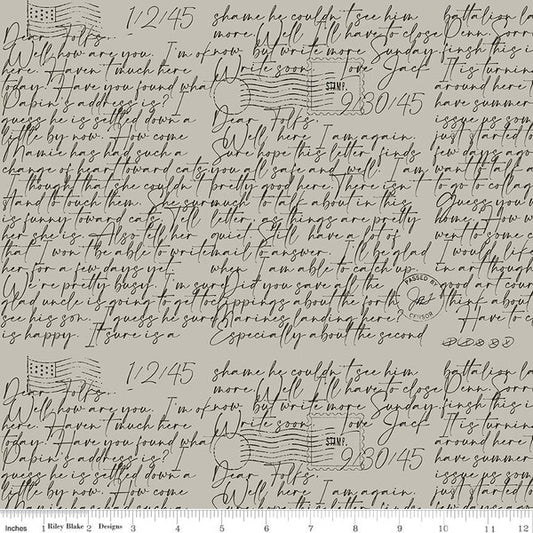 1/2/45
Dear Folks,
Well how are you. I'm of
here. Haven't much here
today. Have you found wha
Papin's address is?
guess he is settled down a
little by now. How come
Mamie has had such a
change of heart toward cats
thought that she couldn't
stand to touch them. She sure
is funny toward cats. Tell
her she is. Also tell her
that I won't be able to write
her for a few days yet.
We're pretty busy. I'm sure
glad uncle is going to get to
see his son. I guess he sure
is happy. It sure is a
shame he couldn't see him
more. Well I'll have to close
now but write more Sunday.
Write soon. Love Jack
STAMP.
9/30/45
Dear Folks.
Well here I am again.
Sure hope this letter finds
you all safe and well. I am
pretty good here. There isn't
much to talk about in this
letter, as things are pretty
quiet. Still have a lot of
mail to answer. I'll be glad
when I am able to catch up.
Did you save all the
clippings about the forth
Marines landing here?
Especially about the second
PASSED BY
CENSOR
battalion la
Denn. Sorr
finsh this i
It is turnin
around here t
have summer
issue us som
just started t
few days ago
want to talk a
to go to collag
Guess you w
home. How w
went to some
I would like
in art though
good art cour
think about
Have to c
1/2/45
Dear Folks,
Well how are you. I'm of
here. Haven't much here
today. Have you found wha
Papin's address is?
guess he is settled down a
little by now. How come
shame he couldn't see him
more. Well I'll have to close
now but write more Sunday.
Write soon. Love Jack
STAMP.
9/30/45
Dear Folks.
Well here I am again.
battalion la
Denn. Sorr
finsh this i
It is turnin
around here t
have summer
issue us som
just started t
Inches 1 Riley Blake 2 Designs 3 4 5 6 7 8 9 10 11 12